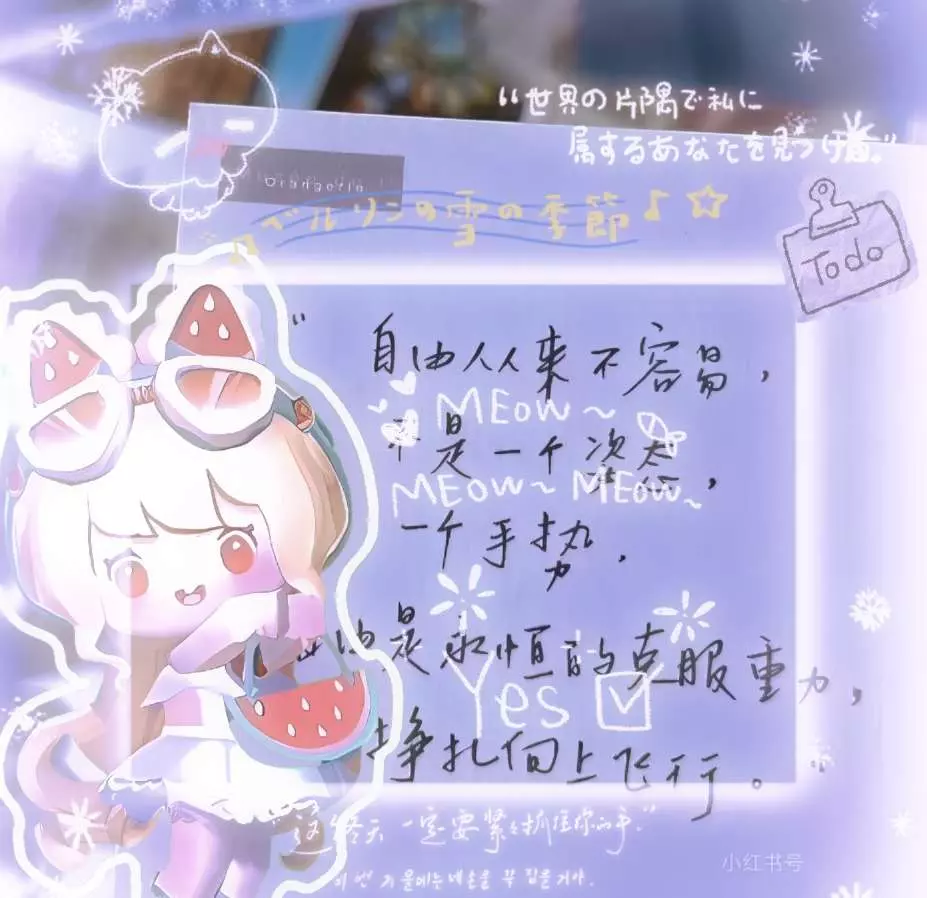 “世界の片隅で私に
属するあなたを見つける。”
ベルリンの雪の季節♪☆
Todo
“自由从来不容易，
MEOW~
不是一个姿态，
MEOW~ MEOW~
一个手势.
自由是永恒的克服重力，
Yes
挣扎向上飞行。
“这冬天一定要紧紧抓住你的手.”
이번 겨울에는 네 손을 꼭 잡을거야.
小红书号